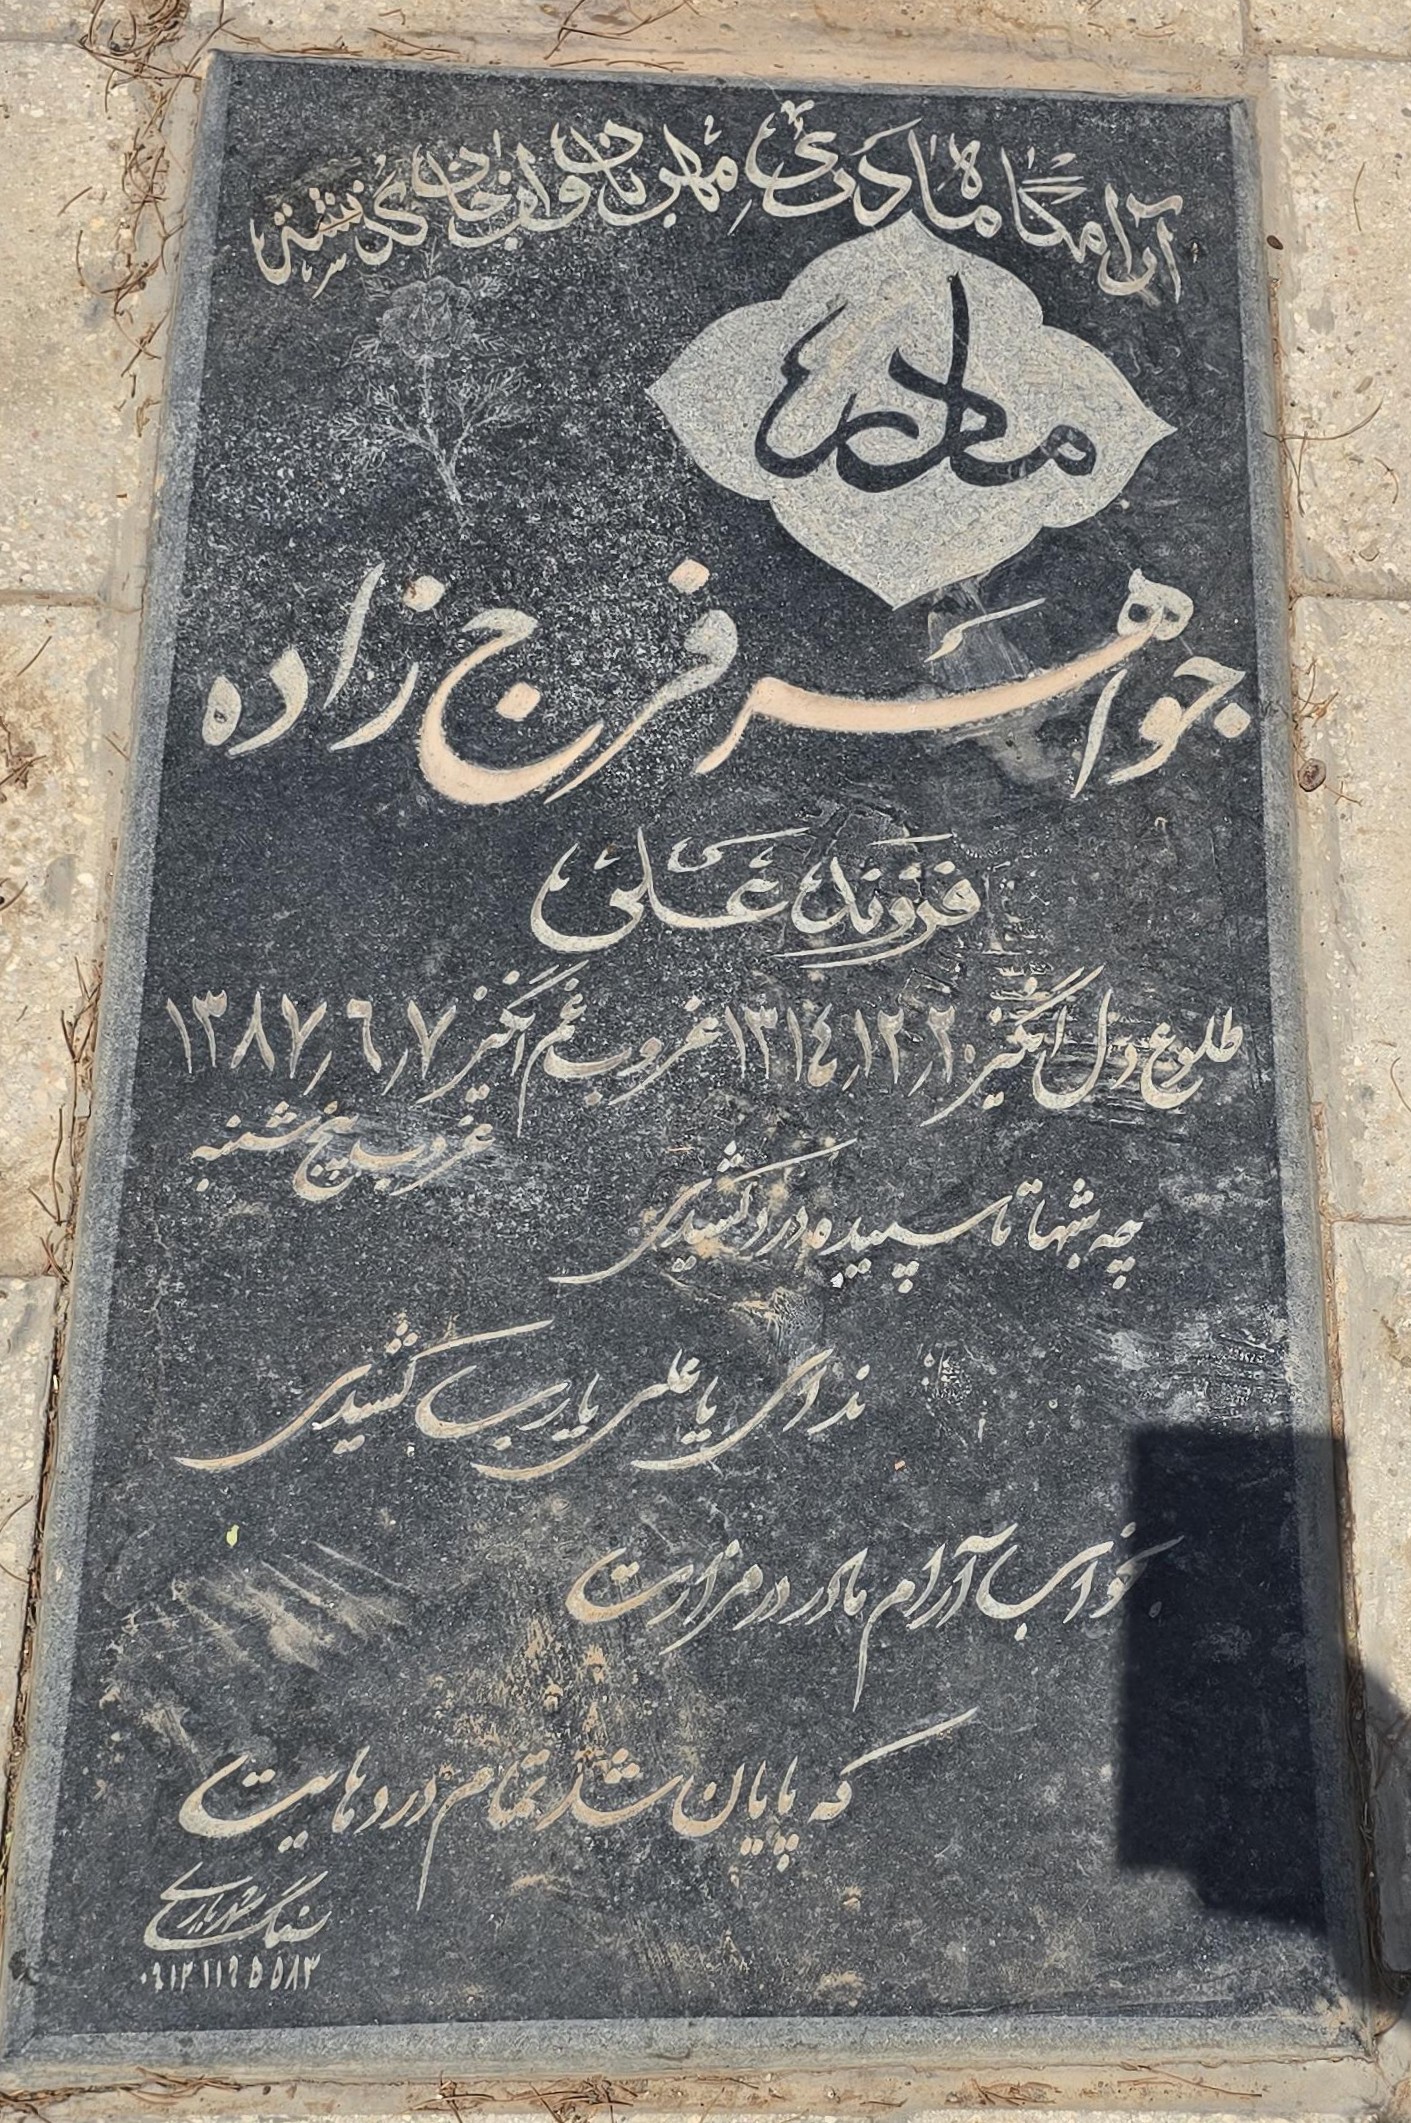 آرامگاه مادری مهربان و از جان گذشته
مادر
جواهر فرج زاده
فرزند علی
طلوع دل انگیز ۱۳۱٤٫۱۲٫۲۰ غروب غم انگیز ۱۳۸۷٫٦٫۷
غروب پنج شنبه
چه شبها تا سپیده درد کشیدی
ندای یا علی یا رب کشیدی
بخواب آرام مادر در مزارت
که پایان شد تمام دردهایت
سنگ شهریاری
۰۹۱۲ ۱۱۹ ۵۵۸۳